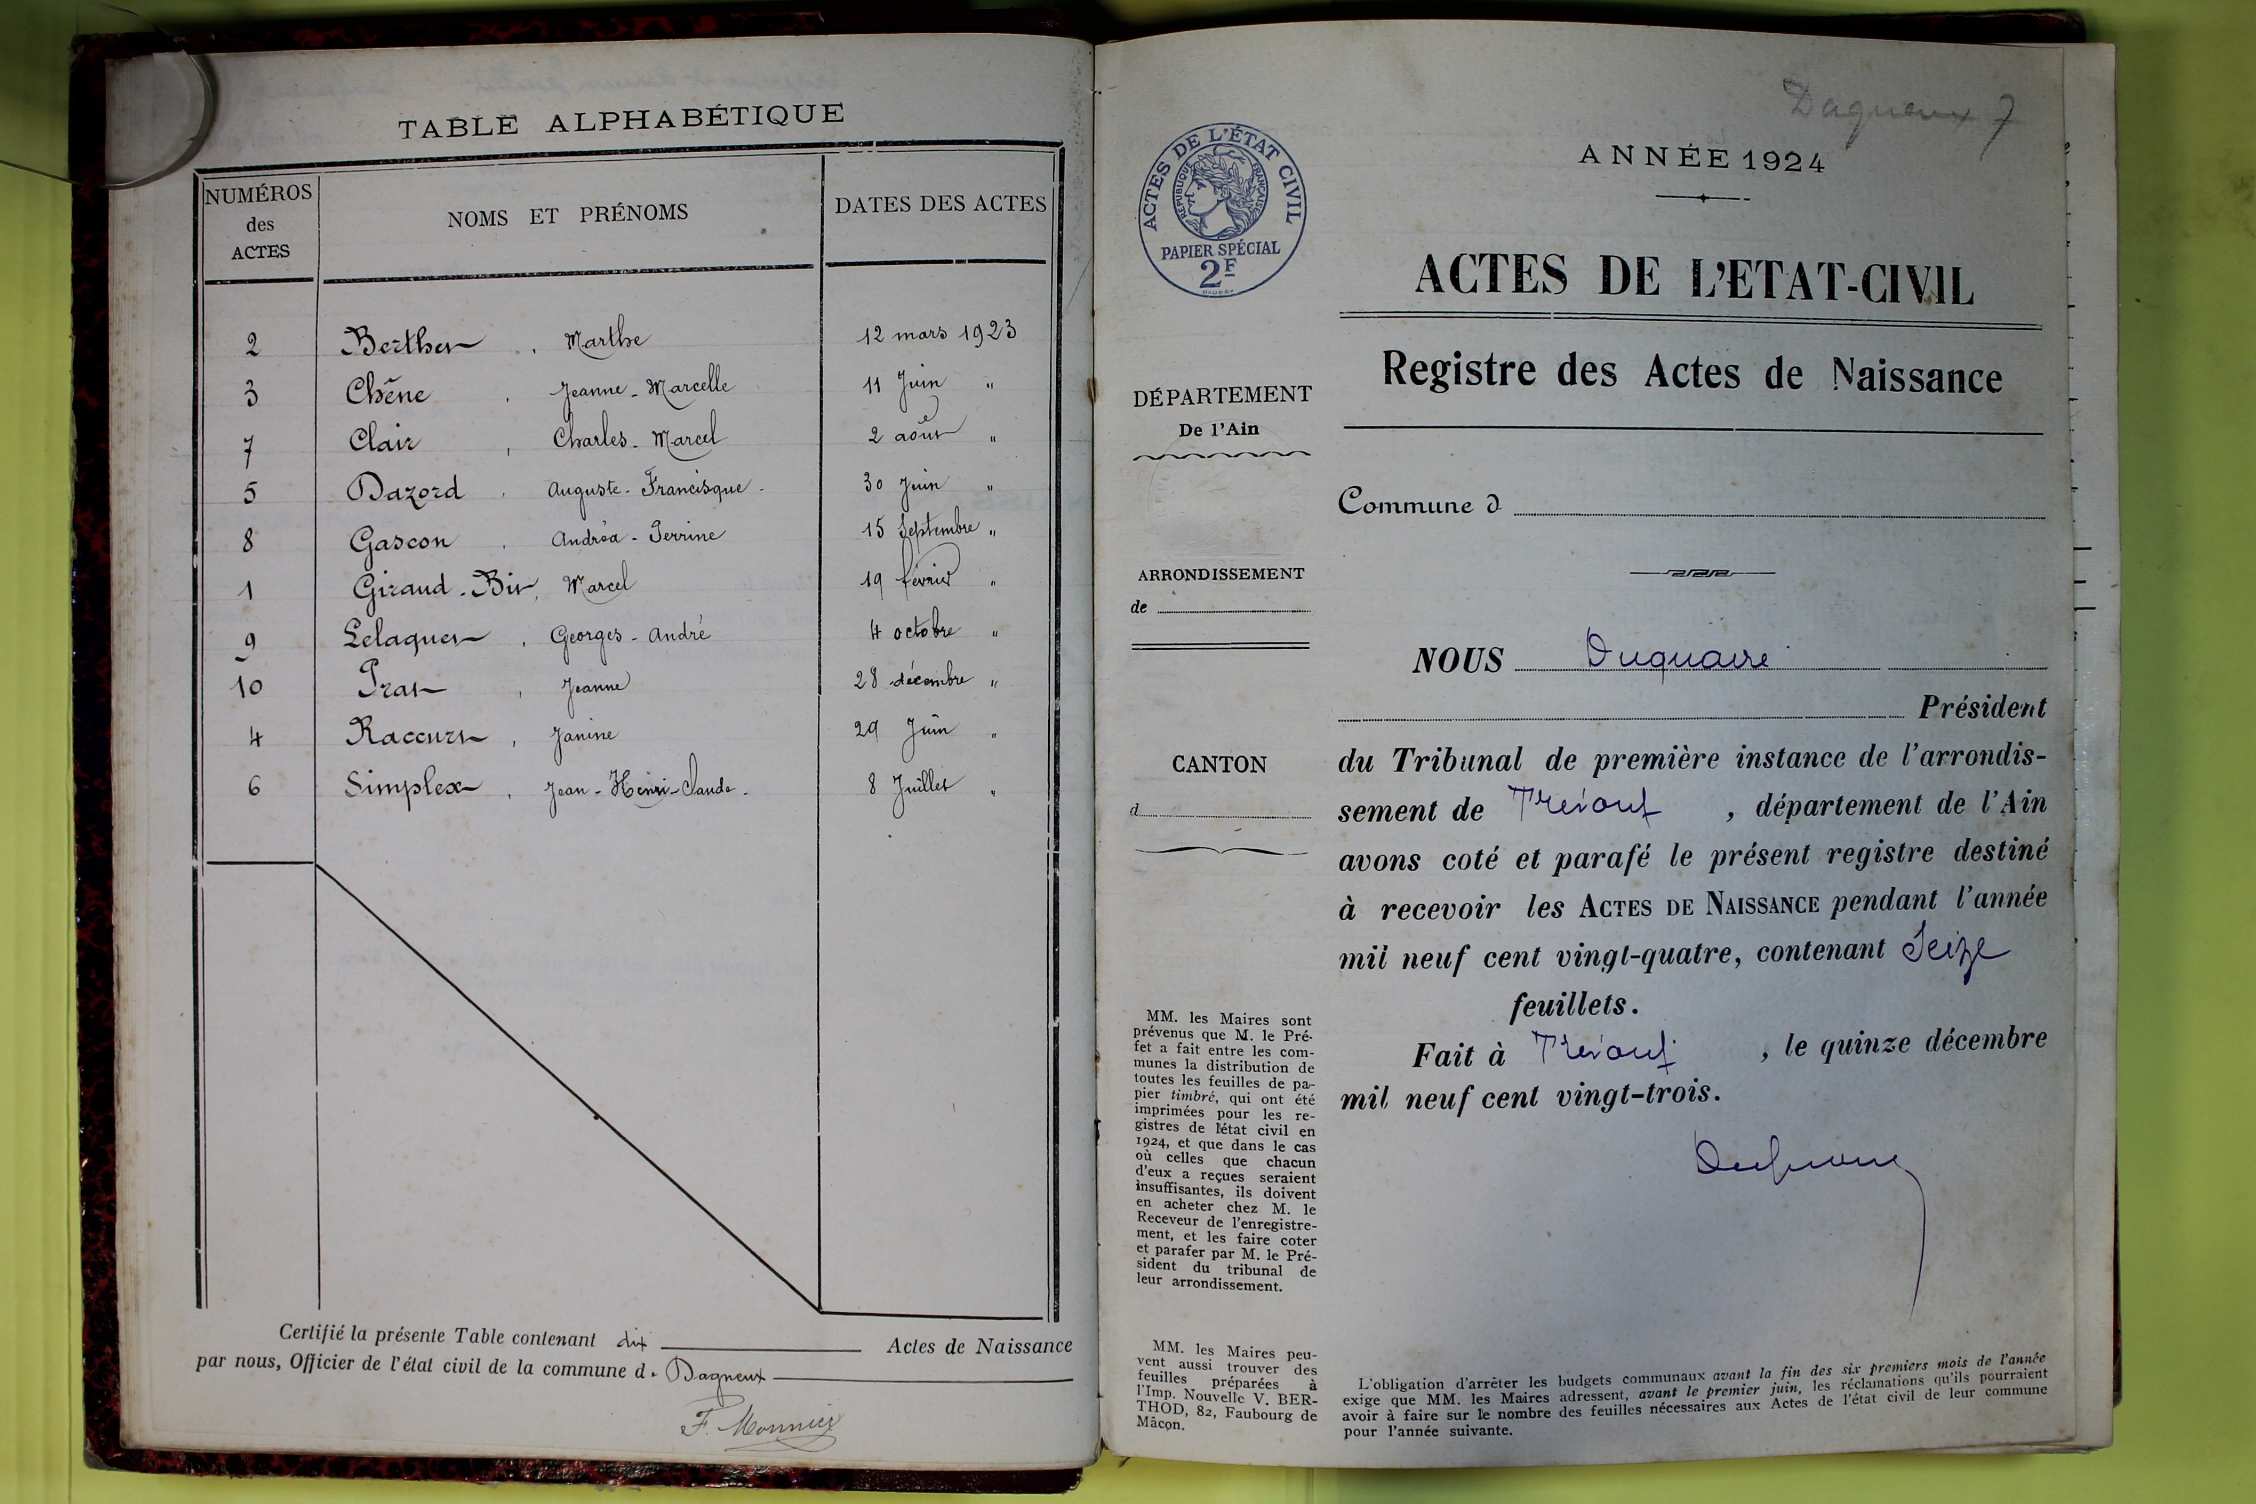 TABLE ALPHABÉTIQUE
NUMÉROS des ACTES NOMS ET PRÉNOMS DATES DES ACTES
2 Berthet, Marthe 12 mars 1923
3 Chêne, Jeanne-Marcelle 11 Juin "
7 Clair, Charles-Marcel 2 août "
5 Dazord, Auguste-Francisque 30 Juin "
8 Gascon, Andréa-Perrine 15 Septembre "
1 Giraud-Bit, Marcel 19 février "
9 Lelaquet, Georges-André 4 octobre "
10 Prat, Jeanne 28 décembre "
4 Raccurt, Janine 29 Juin "
6 Simplex, Jean-Henri-Claude 8 Juillet "
Certifié la présente Table contenant dix Actes de Naissance
par nous, Officier de l'état civil de la commune d. Dagneux
F. Monnier
Dagneux 7
ACTES DE L'ÉTAT CIVIL
RÉPUBLIQUE FRANÇAISE
PAPIER SPÉCIAL
2F
ANNÉE 1924
ACTES DE L'ETAT-CIVIL
Registre des Actes de Naissance
DÉPARTEMENT
De l'Ain
Commune d
ARRONDISSEMENT
de
NOUS Duquaire
Président
CANTON
d
du Tribunal de première instance de l'arrondis-
sement de Trévoux, département de l'Ain
avons coté et parafé le présent registre destiné
à recevoir les ACTES DE NAISSANCE pendant l'année
mil neuf cent vingt-quatre, contenant Seize
feuillets.
Fait à Trévoux, le quinze décembre
mil neuf cent vingt-trois.
Duquaire
MM. les Maires sont
prévenus que M. le Pré-
fet a fait entre les com-
munes la distribution de
toutes les feuilles de pa-
pier timbré, qui ont été
imprimées pour les re-
gistres de l'état civil en
1924, et que dans le cas
où celles que chacun
d'eux a reçues seraient
insuffisantes, ils doivent
en acheter chez M. le
Receveur de l'enregistre-
ment, et les faire coter
et parafer par M. le Pré-
sident du tribunal de
leur arrondissement.
MM. les Maires peu-
vent aussi trouver des
feuilles préparées à
l'Imp. Nouvelle V. BER-
THOD, 82, Faubourg de
Mâcon.
L'obligation d'arrêter les budgets communaux avant la fin des six premiers mois de l'année
exige que MM. les Maires adressent, avant le premier juin, les réclamations qu'ils pourraient
avoir à faire sur le nombre des feuilles nécessaires aux Actes de l'état civil de leur commune
pour l'année suivante.